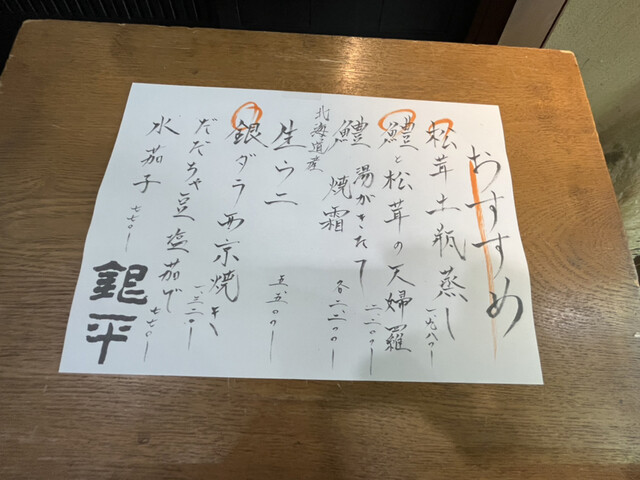 おすすめ
松茸土瓶蒸し 一、九八〇ー
鱧と松茸の天婦羅 二、二〇〇ー
鱧 湯がきたて 焼霜 各二、二〇〇ー
北海道産 生ウニ 五、五〇〇ー
銀ダラ西京焼き 一、三二〇ー
だだちゃ豆塩茹で 七七〇ー
水茄子 七七〇ー
銀平